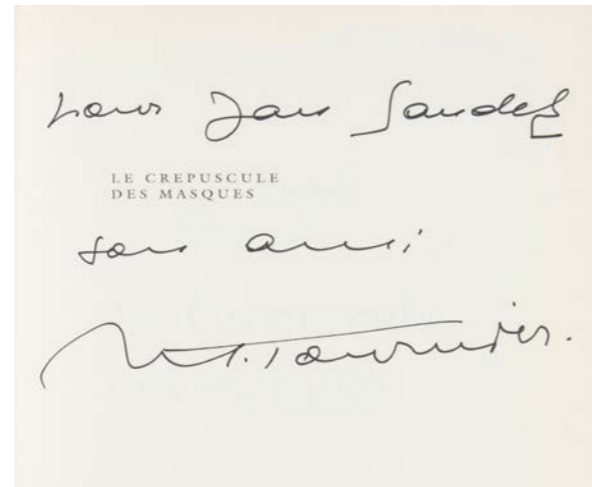 pour Jan Saudek
LE CREPUSCULE
DES MASQUES
son ami
M. Tournier.